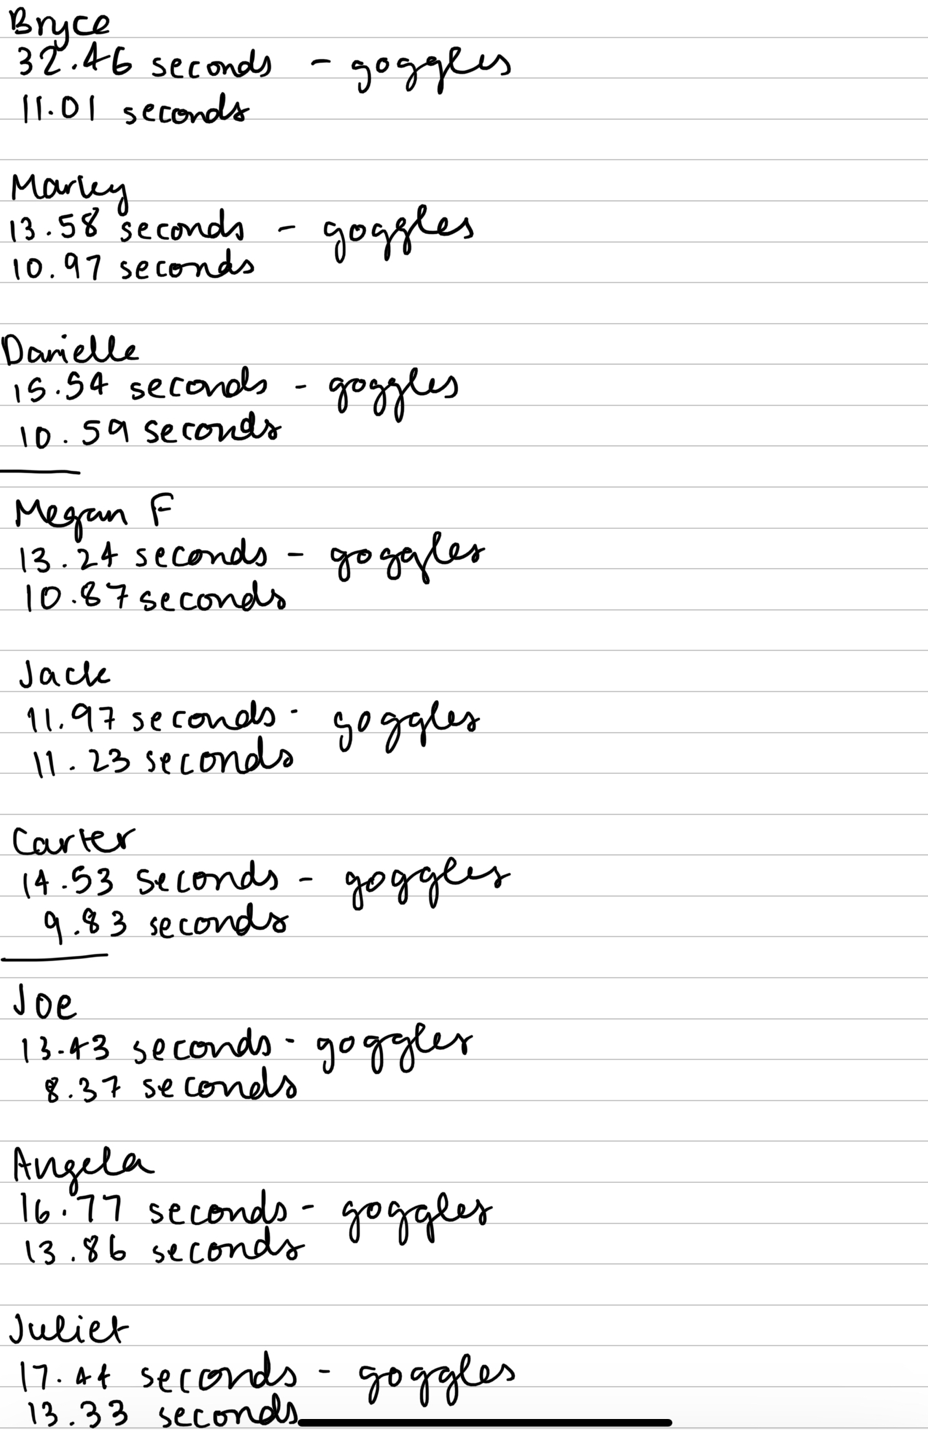 Bryce
32.46 seconds - goggles
11.01 seconds
Marley
13.58 seconds - goggles
10.97 seconds
Danielle
15.54 seconds - goggles
10.59 seconds
Megan F
13.24 seconds - goggles
10.87 seconds
Jack
11.97 seconds - goggles
11.23 seconds
Carter
14.53 seconds - goggles
9.83 seconds
Joe
13.43 seconds - goggles
8.37 seconds
Angela
16.77 seconds - goggles
13.86 seconds
Juliet
17.44 seconds - goggles
13.33 seconds